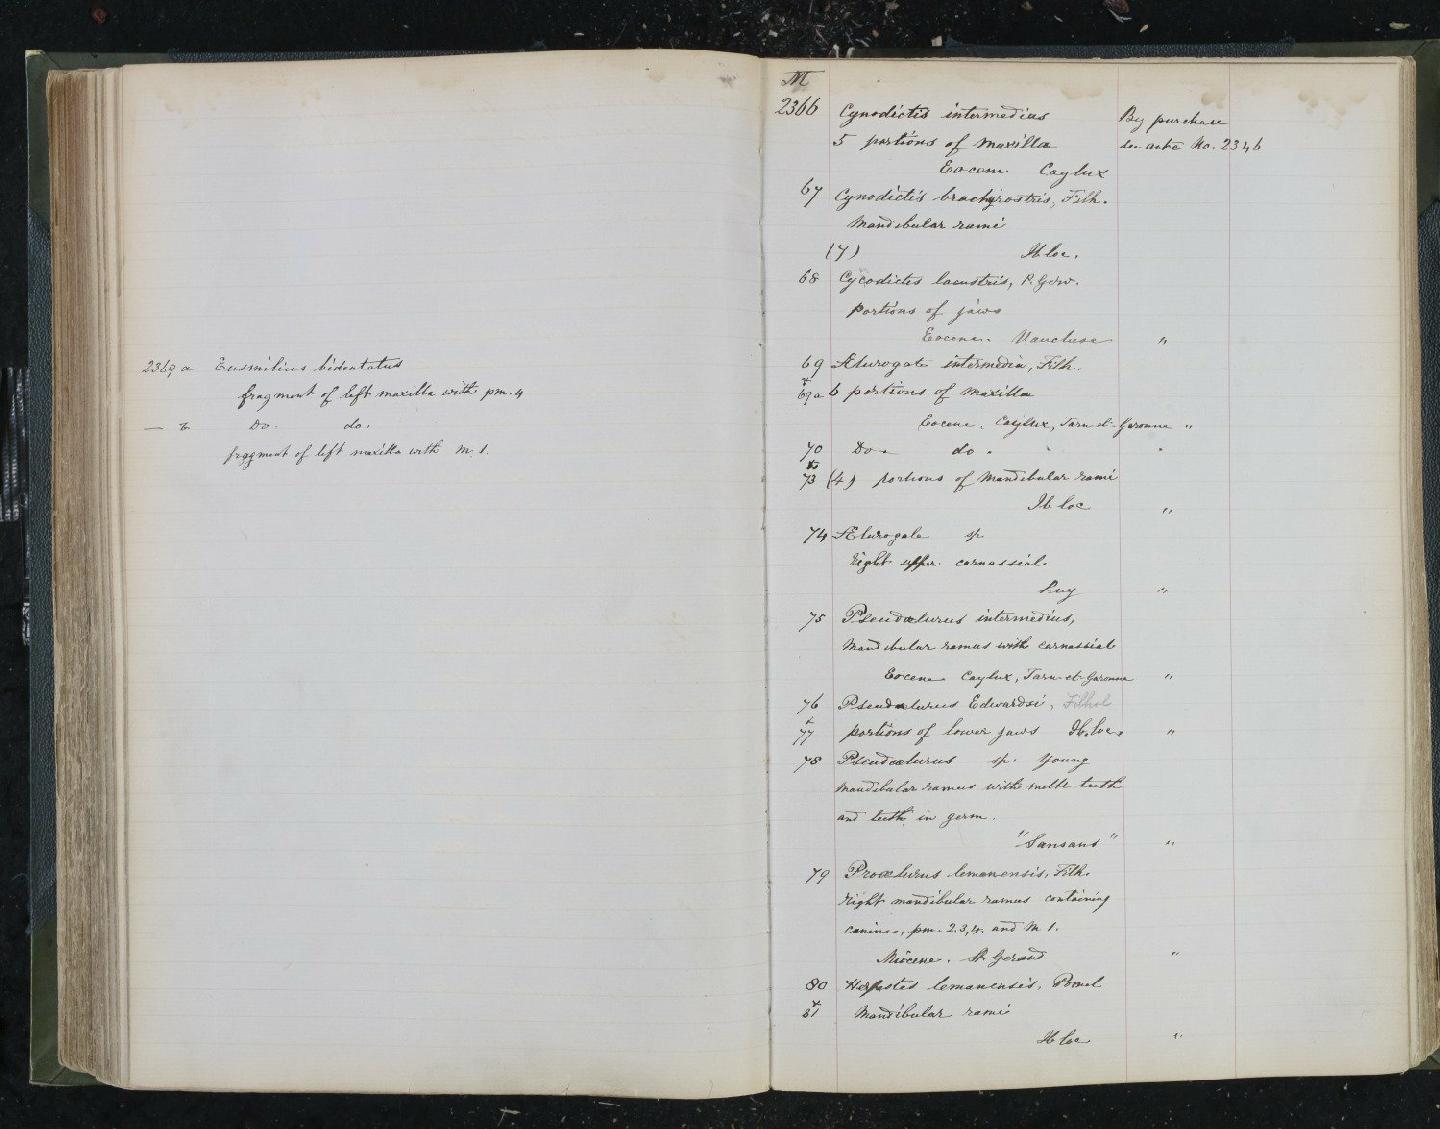 2369 a Eusmilus bidentatus
fragment of left maxilla with pm. 4
— b Do. do.
fragment of left maxilla with m. 1.
M
2366 Cynodictis intermedius By purchase
5 portions of maxilla see ante No. 2346
Eocene. Caylux
67 Cynodictis brachyrostris, Filh.
Mandibular rami
(7) Ib loc.
68 Cynodictis lacustris, P. Gerv.
portions of jaws
Eocene. Vaucluse "
69 Ælurogale intermedia, Filh.
+
69a 6 portions of maxilla
Eocene. Caylux, Tarn-et-Garonne "
70 Do. do. "
to
73 (4) portions of Mandibular rami
Ib loc "
74 Ælurogale sp.
Right upper carnassial.
"
75 Pseudælurus intermedius,
Mandibular ramus with carnassial
Eocene Caylux, Tarn-et-Garonne "
76 Pseudælurus Edwardsi, Filhol
+
77 portions of lower jaws Ib. loc. "
78 Pseudælurus sp. Young
Mandibular ramus with milk teeth
and teeth in germ.
"Sansans" "
79 Proælurus lemanensis, Filh.
Right mandibular ramus containing
canine, pm. 2.3,4. and M 1.
Miocene. St Gerand "
80 Herpestes lemanensis, Pomel
+
81 Mandibular rami
Ib loc "